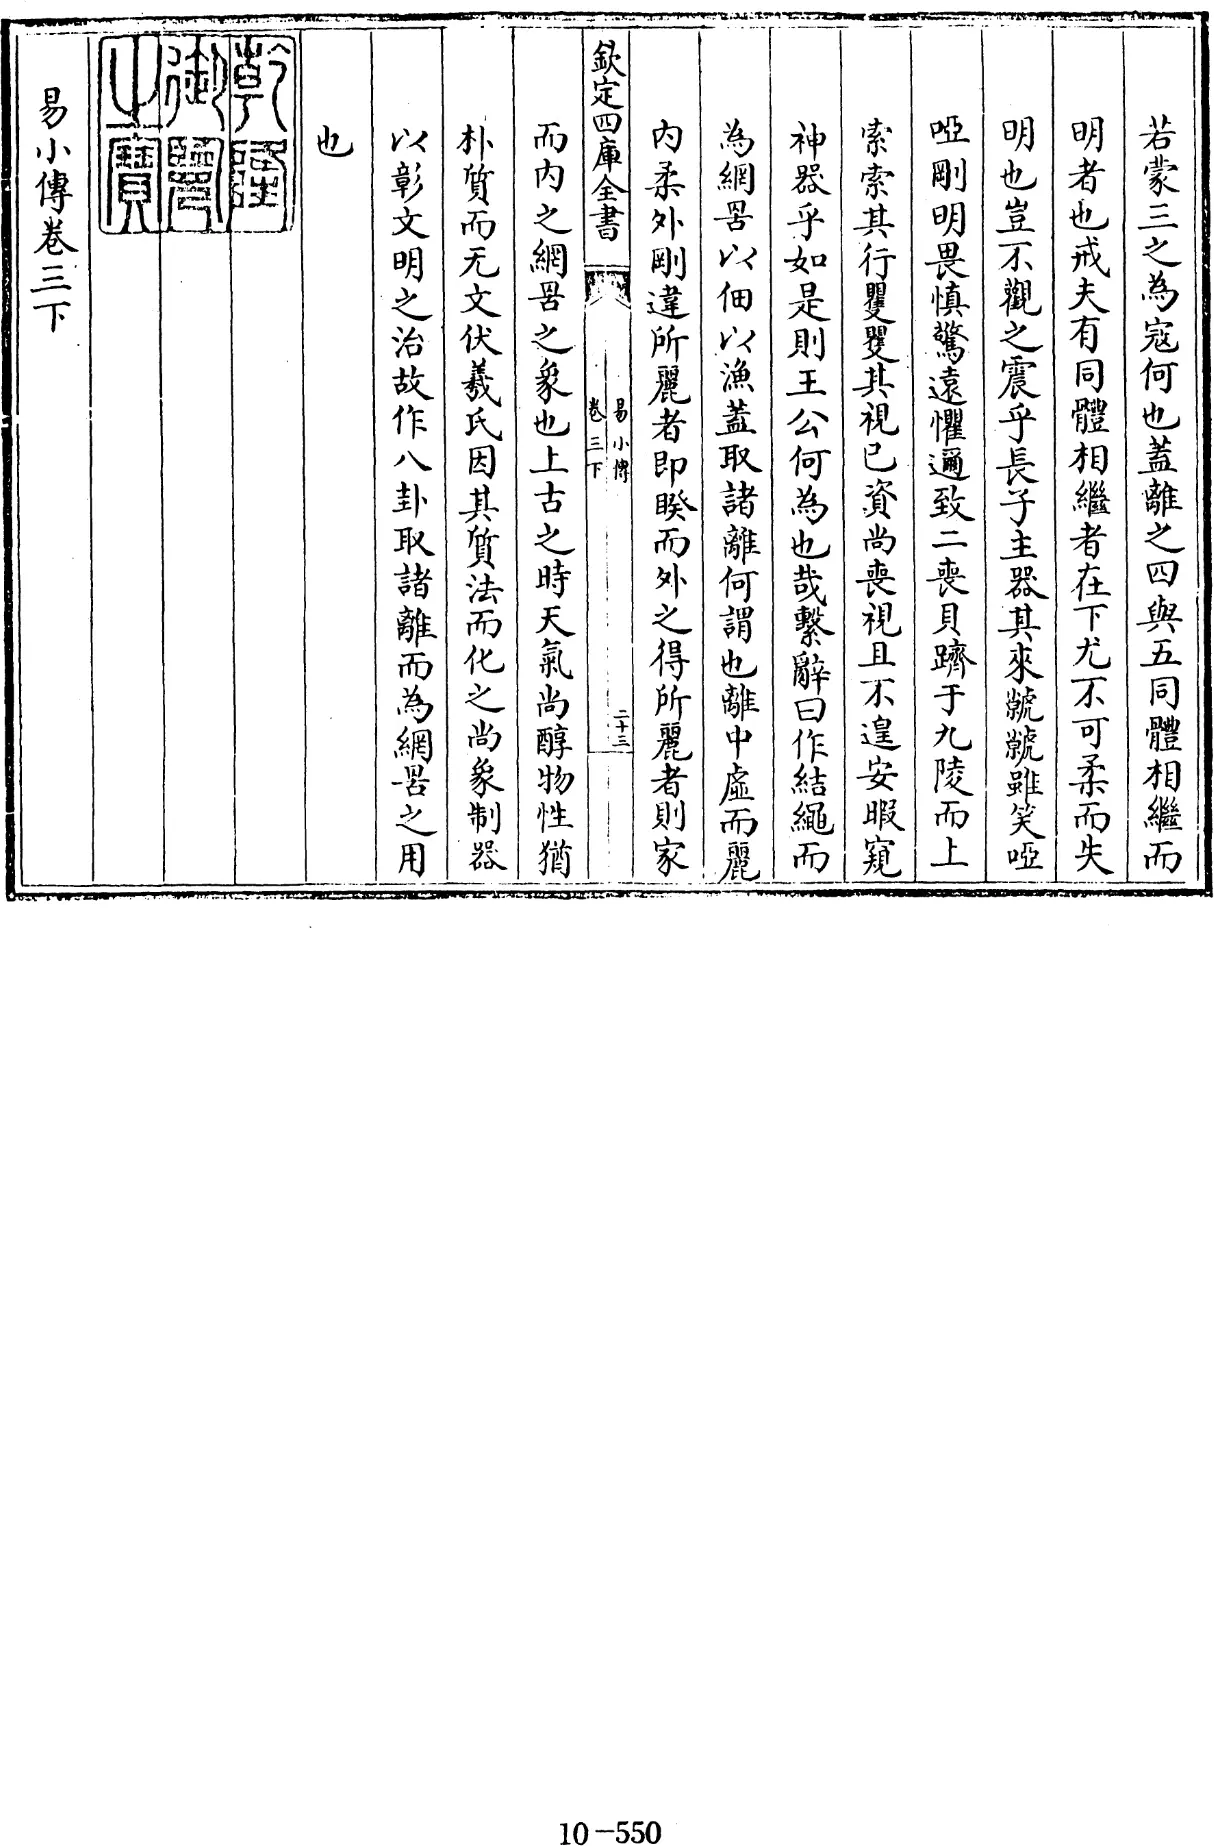 若蒙三之為寇何也蓋離之四與五同體相繼而
明者也戒夫有同體相繼者在下尤不可柔而失
明也豈不觀之震乎長子主器其來虩虩雖笑啞
啞剛明畏慎驚遠懼邇致二喪貝躋于九陵而上
索索其行矍矍其視已資尚喪視且不遑安暇窺
神器乎如是則王公何為也哉繫辭曰作結繩而
為網罟以佃以漁蓋取諸離何謂也離中虛而麗
内柔外剛違所麗者即睽而外之得所麗者則家
欽定四庫全書
易小傳
卷三下
二十三
而内之網罟之象也上古之時天氣尚醇物性猶
朴質而无文伏羲氏因其質法而化之尚象制器
以彰文明之治故作八卦取諸離而為網罟之用
也
乾隆
御覽
之寶
易小傳卷三下
10-550